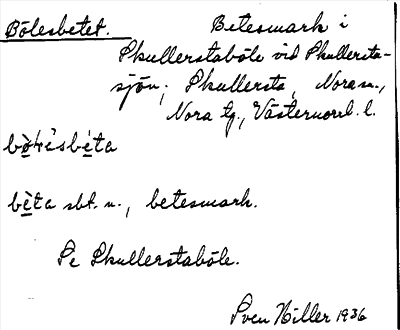 Bölesbetet. Betesmark i
Skullerstaböle vid Skullersta-
sjön, Skullersta, Nora sn.,
Nora tg., Västernorrl. l.
bèta sbt. n., betesmark.
Se Skullerstaböle.
Sven Hiller 1936